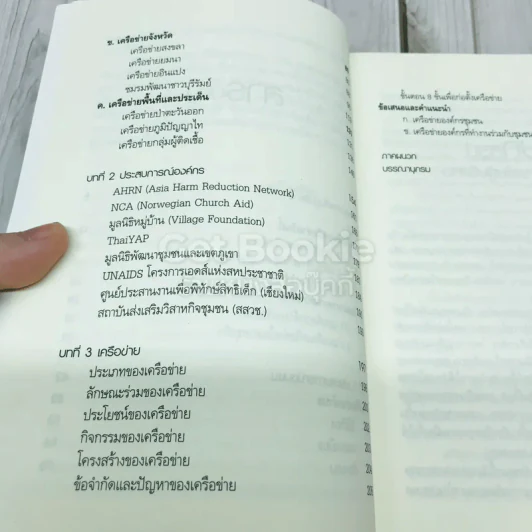 ข. เครือข่ายจังหวัด
เครือข่ายสงขลา
เครือข่ายยมนา
เครือข่ายอินแปง
ชมรมพัฒนาชาวบุรีรัมย์
ค. เครือข่ายพื้นที่และประเด็น
เครือข่ายป่าตะวันออก
เครือข่ายภูมิปัญญาไท
เครือข่ายกลุ่มผู้ติดเชื้อ
บทที่ 2 ประสบการณ์องค์กร
AHRN (Asia Harm Reduction Network)
NCA (Norwegian Church Aid)
มูลนิธิหมู่บ้าน (Village Foundation)
ThaiYAP
มูลนิธิพัฒนาชุมชนและเขตภูเขา
UNAIDS โครงการเอดส์แห่งสหประชาชาติ
ศูนย์ประสานงานเพื่อพิทักษ์สิทธิเด็ก (เชียงใหม่)
สถาบันส่งเสริมวิสาหกิจชุมชน (สสวช.)
บทที่ 3 เครือข่าย
ประเภทของเครือข่าย
ลักษณะร่วมของเครือข่าย
ประโยชน์ของเครือข่าย
กิจกรรมของเครือข่าย
โครงสร้างของเครือข่าย
ข้อจำกัดและปัญหาของเครือข่าย
ขั้นตอน 8 ขั้นเพื่อก่อตั้งเครือข่าย
ข้อเสนอและคำแนะนำ
ก. เครือข่ายองค์กรชุมชน
ข. เครือข่ายองค์กรที่ทำงานร่วมกับชุมชน
ภาคผนวก
บรรณานุกรม
Get Bookie